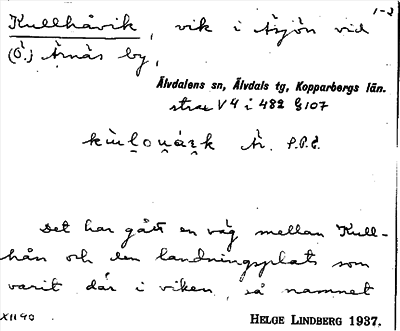 1-2
Kullhåvik, vik i Åsjön vid
(Ö.) Årnäs by,
Älvdalens sn, Älvdals tg, Kopparbergs län.
strax V 4 i 482 § 107
Är. S.P.E.
Det har gått en väg mellan Kull-
hån och den landningsplats som
varit där i viken, så namnet
XII 40
HELGE LINDBERG 1937.